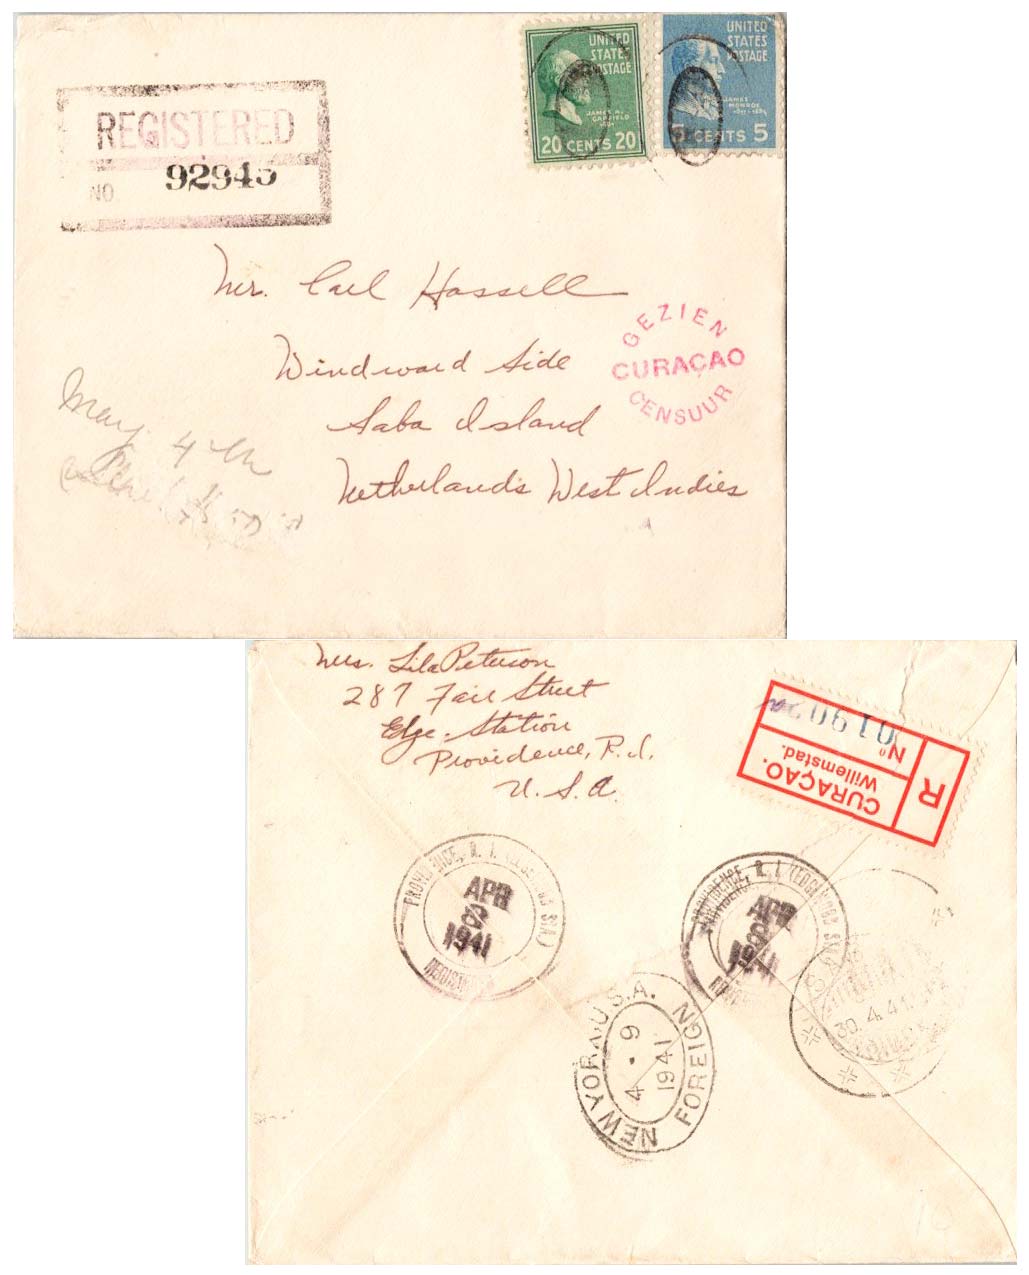 UNITED
STATES
POSTAGE
JAMES A.
GARFIELD
20 CENTS 20
UNITED
STATES
POSTAGE
JAMES
MONROE
5 CENTS 5
REGISTERED
NO. 92945
Mr. Carl Hassell
Windward Side
Saba Island
Netherlands West Indies
GEZIEN
CURAÇAO
CENSUUR
May 4th
Mrs. Lila Peterson
287 Fair Street
Edge. Station
Providence, R.I.
U.S.A.
R
CURAÇAO.
Willemstad.
Nº 01902
PROVIDENCE, R. I. (EDGEWOOD STA.)
APR
8
1941
REGISTERED
PROVIDENCE, R. I. (EDGEWOOD STA.)
APR
8
1941
NEW YORK, U.S.A.
4-9
1941
FOREIGN
SABA
30.4.41